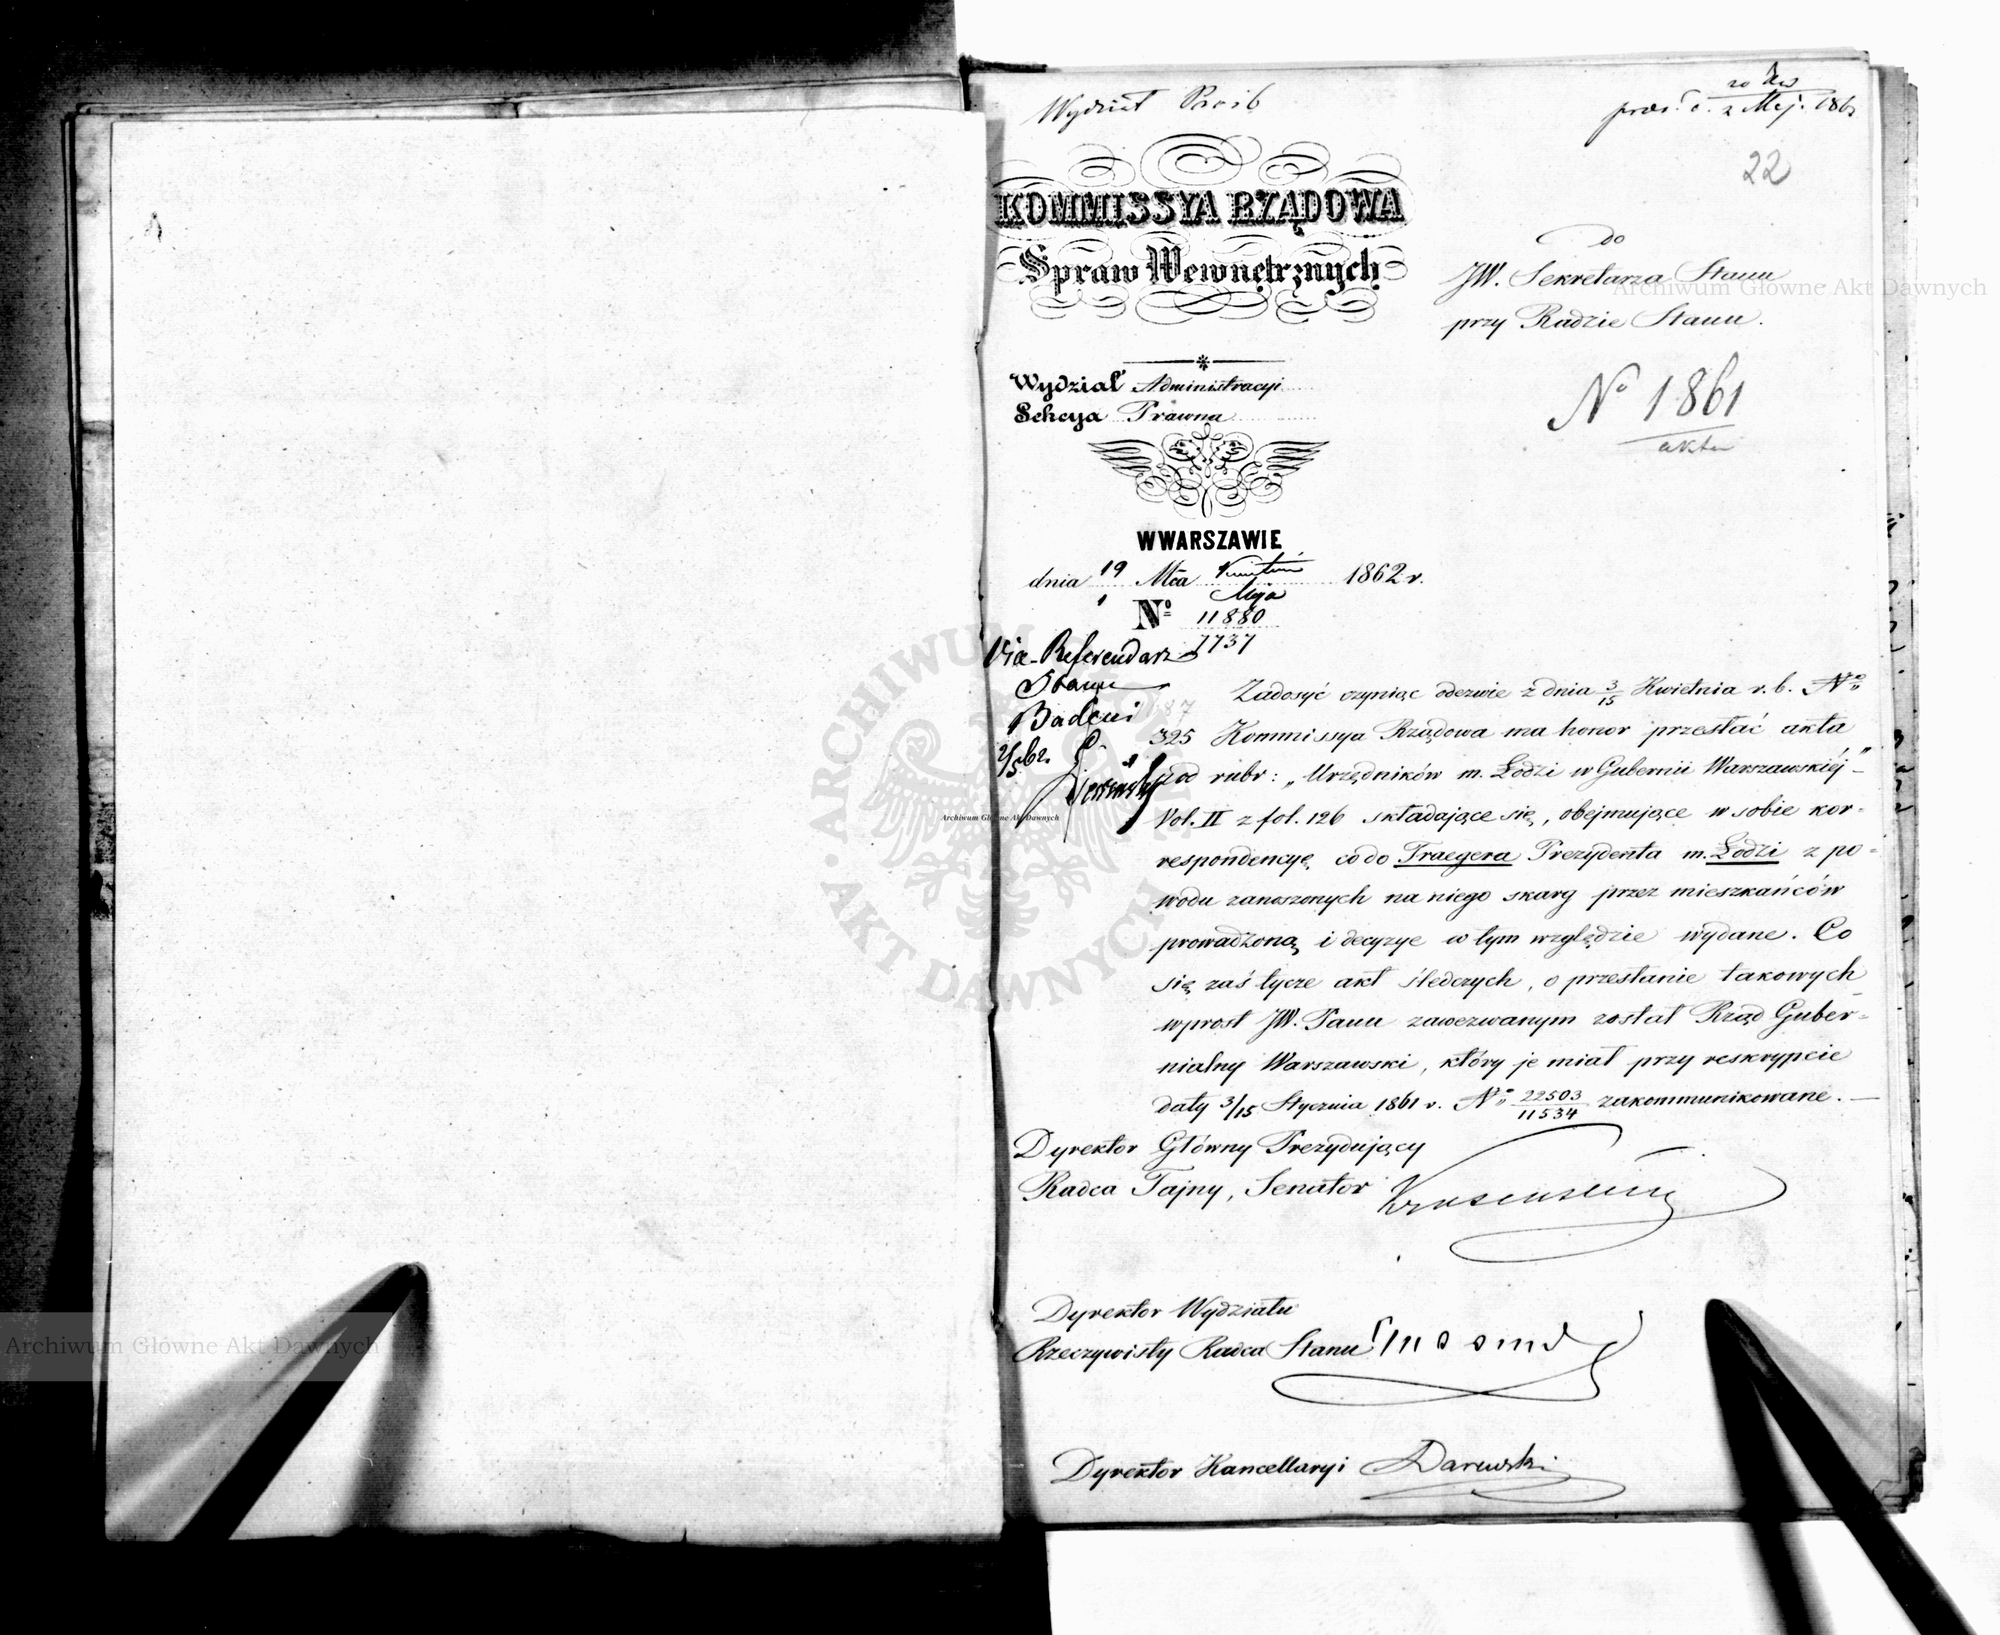 Wydział Prośb
22
KOMMISSYA RZĄDOWA
Spraw Wewnętrznych
do
JW. Sekretarza Stanu
przy Radzie Stanu.
Wydział Administracyi
Sekcya Prawna
No 1861
akta
W WARSZAWIE
dnia 19 Mca Kwietnia 1862 r.
1 Maja
No 11880
7737
Vice-Referendarz
Stanu
Badeni
2/5 62.
Zadosyć czyniąc odezwie z dnia 3/15 Kwietnia r. b. No
325 Kommissya Rządowa ma honor przesłać akta
pod rubr: „Urzędników m. Łodzi w Gubernii Warszawskiéj"
Vol. II z fol. 126 składające się, obejmujące w sobie kor-
respondencyę co do Traegera Prezydenta m. Łodzi z po-
wodu zanoszonych na niego skarg przez mieszkańców
prowadzoną i decyzye w tym względzie wydane. Co
się zaś tycze akt śledczych, o przesłanie takowych
wprost JW. Panu zawezwanym został Rząd Guber-
nialny Warszawski, który je miał przy reskrypcie
daty 3/15 Stycznia 1861 r. No 22503/11534 zakommunikowane. —
Dyrektor Główny Prezydujący
Radca Tajny, Senator
Dyrektor Wydziału
Rzeczywisty Radca Stanu
Dyrektor Kancellaryi Darewski
Archiwum Główne Akt Dawnych
Archiwum Główne Akt Dawnych
Archiwum Główne Akt Dawnych
ARCHIWUM GŁÓWNE AKT DAWNYCH